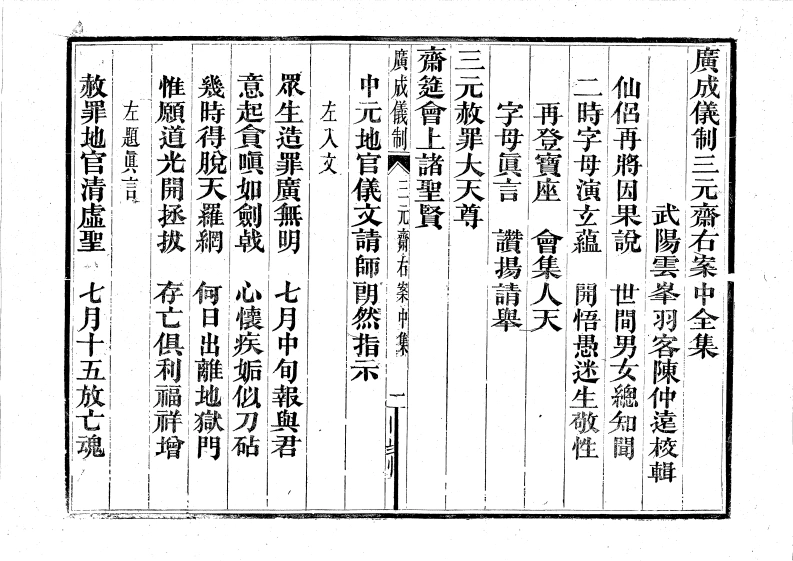 廣成儀制三元齋右案中全集
武陽雲峯羽客陳仲遠校輯
仙侶再將因果說　世間男女總知聞
二時字母演玄蘊　開悟愚迷生敬性
再登寶座　會集人天
字母眞言　讚揚請舉
三元赦罪大天尊
齋筵會上諸聖賢
廣成儀制　三元齋右案中集　二
中元地官儀文請師朗然指示
左入文
眾生造罪廣無明　七月中旬報與君
意起貪嗔如劍戟　心懷疾妬似刀砧
幾時得脫天羅網　何日出離地獄門
惟願道光開拯拔　存亡俱利福祥增
左題眞言
赦罪地官清虛聖　七月十五放亡魂